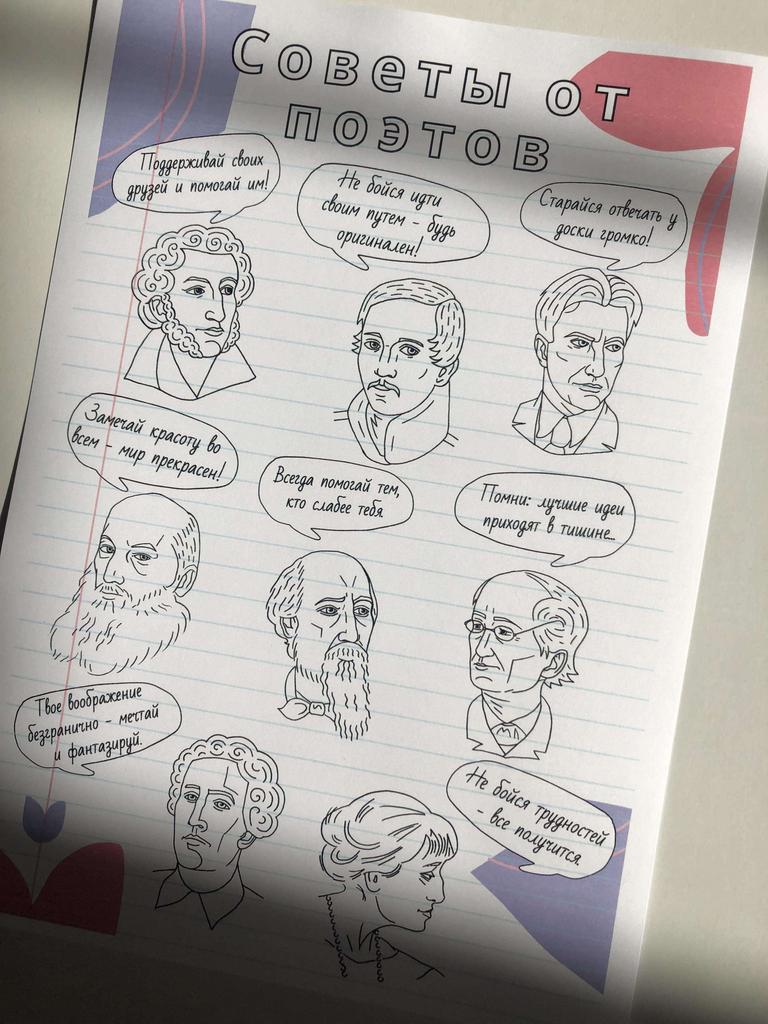 Советы от
поэтов
Поддерживай своих
друзей и помогай им!
Не бойся идти
своим путем - будь
оригинален!
Старайся отвечать у
доски громко!
Замечай красоту во
всем - мир прекрасен!
Всегда помогай тем,
кто слабее тебя
Помни: лучшие идеи
приходят в тишине...
Твое воображение
безгранично - мечтай
и фантазируй.
Не бойся трудностей
- все получится